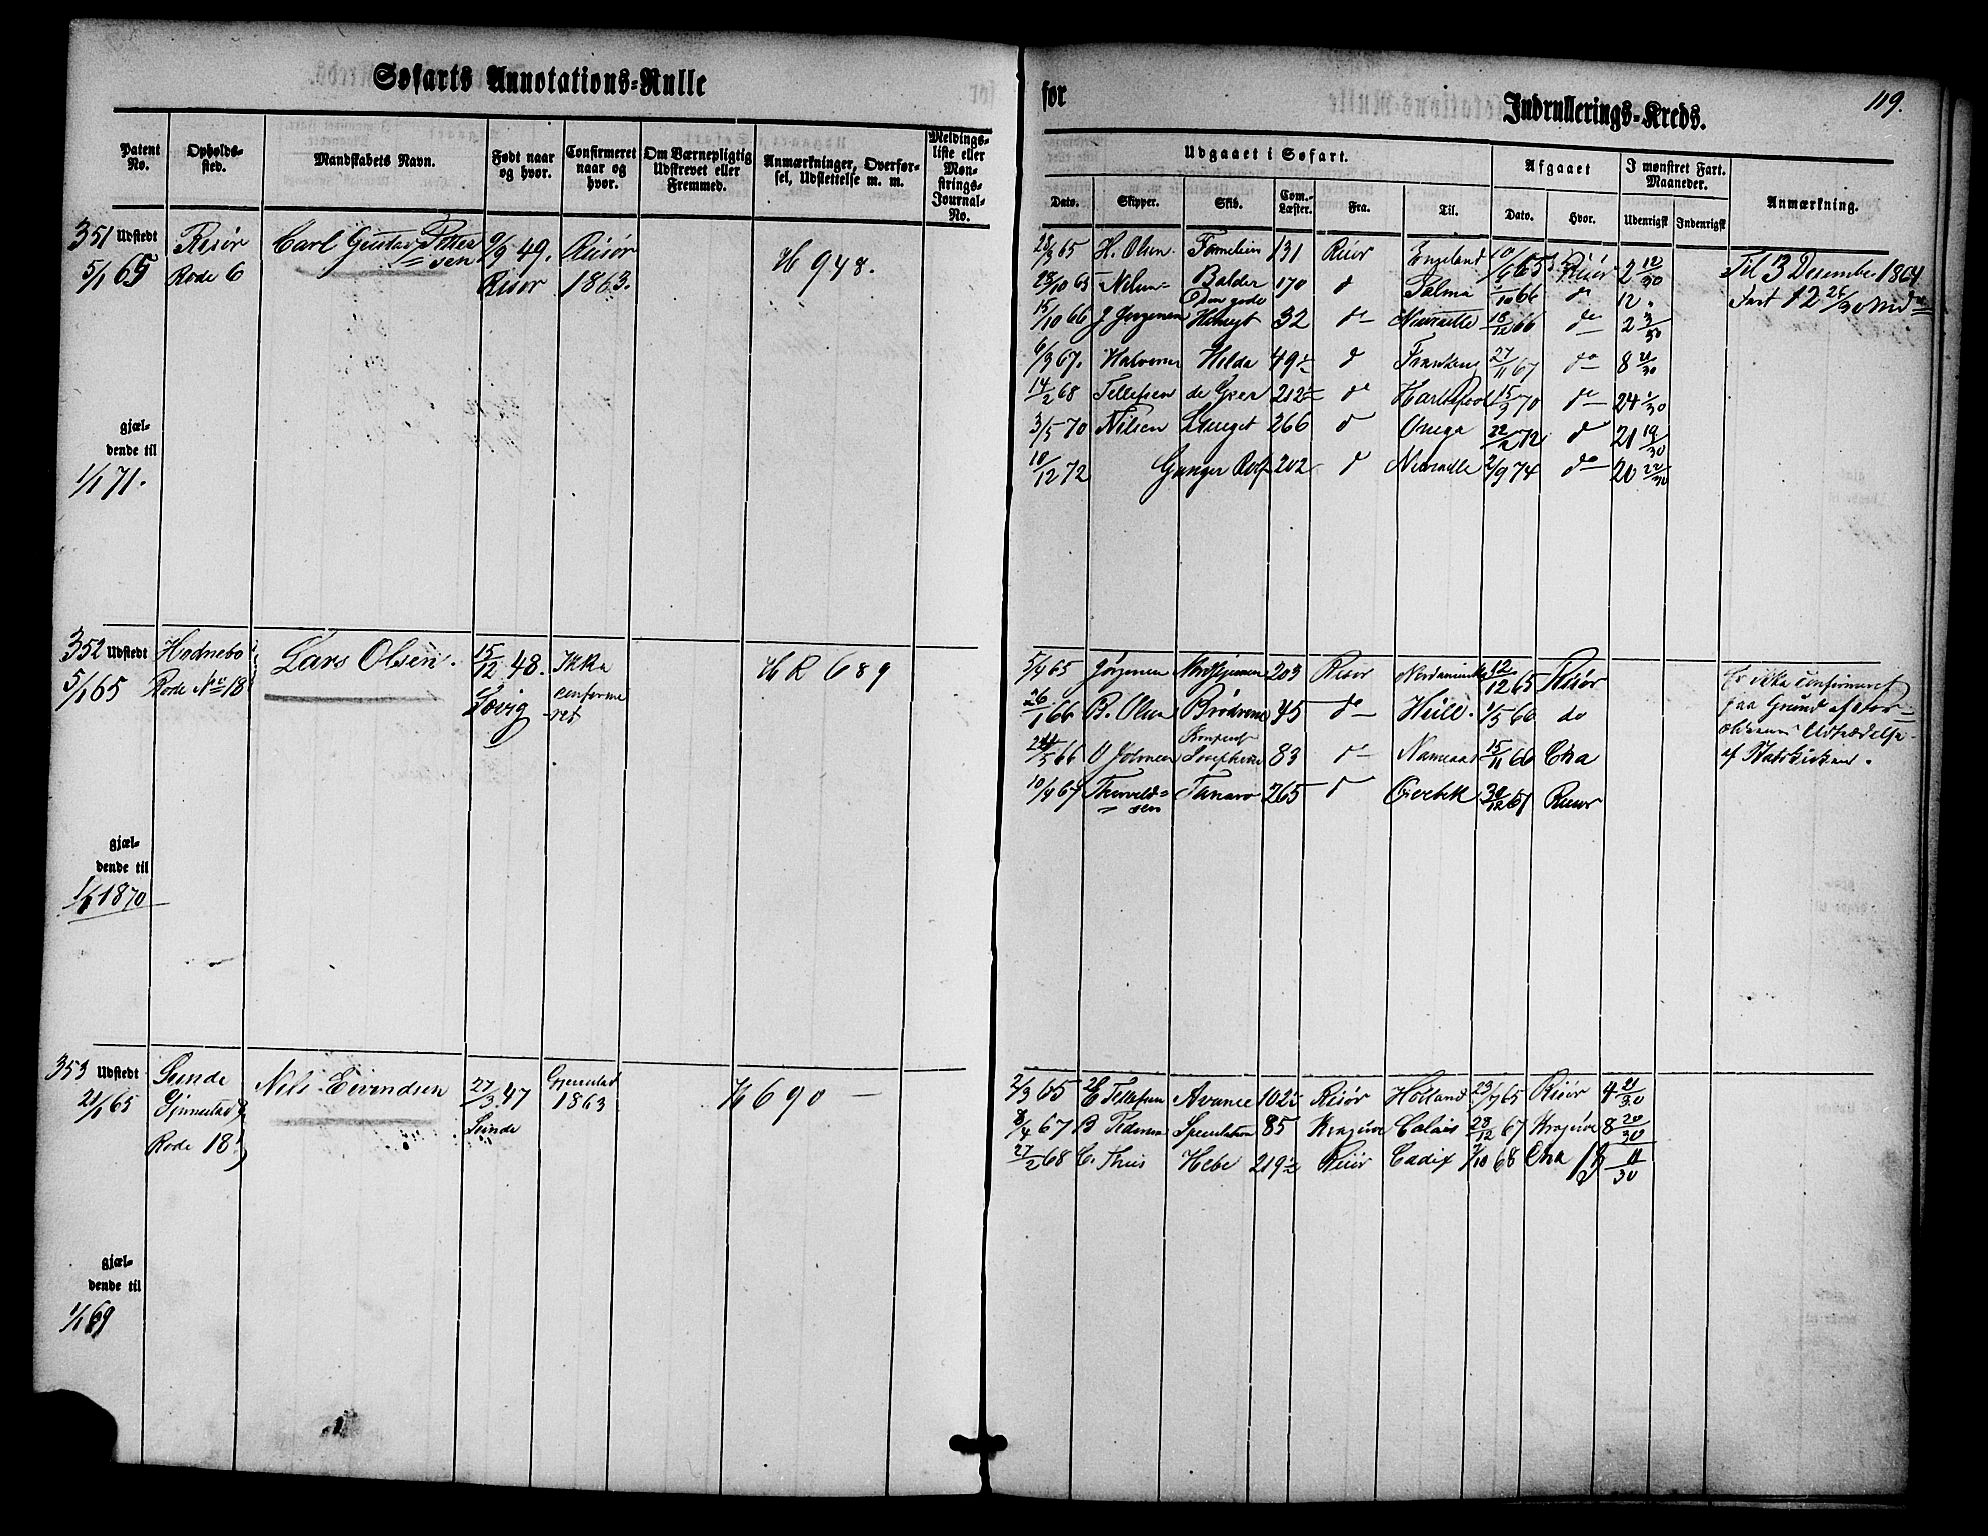 Søfarts Annotations-Rulle
for
Indrullerings-Kreds.
119.
Patent No.
Opholds-sted.
Mandskabets Navn.
Født naar og hvor.
Confirmeret naar og hvor.
Om Værnepligtig Udskrevet eller Fremmed.
Anmærkninger, Overførsel, Udslettelse m. m.
Meldings-liste eller Mønstrings-Journal-No.
Udgaaet i Søfart.
Afgaaet
I mønstret Fart. Maaneder.
Anmærkning.
Dato. Skipper. Skib. Com.-Læster. Fra. Til. Dato. Hvor. Udenrigsk Indenrigsk
351 Udstedt Risør Carl Gustav Petter 9/9 49. Risør
5/1 65 Rode 6 sen Risør 1863. 948.
28/3 65 H. Olsen 131 Risør Engeland 10/6 65 Risør 2 12/30
Til 3 Desember 1864
28/10 65 Nelsen Balder 170 do Palma /10 66 do 12
Fart 12 26/30 Md
Den gode
15/10 66 J Jørgensen Hensigt 32 do 18/12 66 do 2 3/30
6/3 67. Halvorsen Hilda 49 do 27/11 67 do 8 21/30
14/2 68 Tellefsen de Geer 212 do Hartlepool 15/3 70 do 24 1/30
3/5 70 Nilsen 266 do Onega 22/2 72 do 21 19/30
10/12 72 Ganger Rolf 202 do 2/9 74 do 20 22/30
gjæl-
dende til
1/1 71.
352 Udstedt Hødnebo Lars Olsen. 15/12 48. Ikke
5/1 65 Rode No 18 Løvig confirme
ret
R 689
5/4 65 Jørgensen 203 Risør 12/12 65 Risør
Er ikke confirmeret
26/1 66 B. Olsen Brødrene 45 do 1/5 66 do
paa Grund af For-
ældrenes Udtrædelse
5 66 Josephine 83 do 15/11 66 Cha
af Statskirken.
10/4 67 Thorvald-
sen Tanaro 265 do 30/12 67 Risør
gjæl-
dende til
1/1 1870
353 Udstedt Sunde Nils Eivendsen 27/3 47 Gjerrestad
21/1 65 Gjerrestad Sunde 1863 690
Rode 18
2/3 65 E Tellefsen Avance 102 Risør Holland 23/7 65 Risør 4 21/30
8/4 67 B Pedersen Speculation 85 Kragerø Calais 28/12 67 Kragerø 8 20/30
27/2 68 C. Thiis Hebe 219 Risør Cadix /10 68 Cha 11/30
gjæl-
dende til
1/1 69